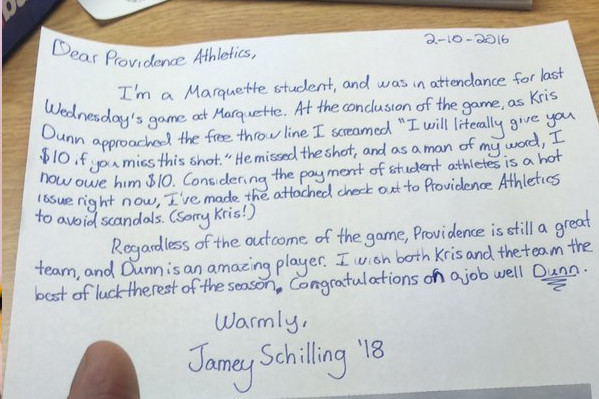 Dear Providence Athletics,
2-10-2016
I'm a Marquette student, and was in attendance for last
Wednesday's game at Marquette. At the conclusion of the game, as Kris
Dunn approached the free throw line I screamed "I will literally give you
$10 if you miss this shot." He missed the shot, and as a man of my word, I
now owe him $10. Considering the payment of student athletes is a hot
issue right now, I've made the attached check out to Providence Athletics
to avoid scandals. (Sorry Kris!)
Regardless of the outcome of the game, Providence is still a great
team, and Dunn is an amazing player. I wish both Kris and the team the
best of luck the rest of the season. Congratulations on a job well Dunn.
Warmly,
Jamey Schilling '18